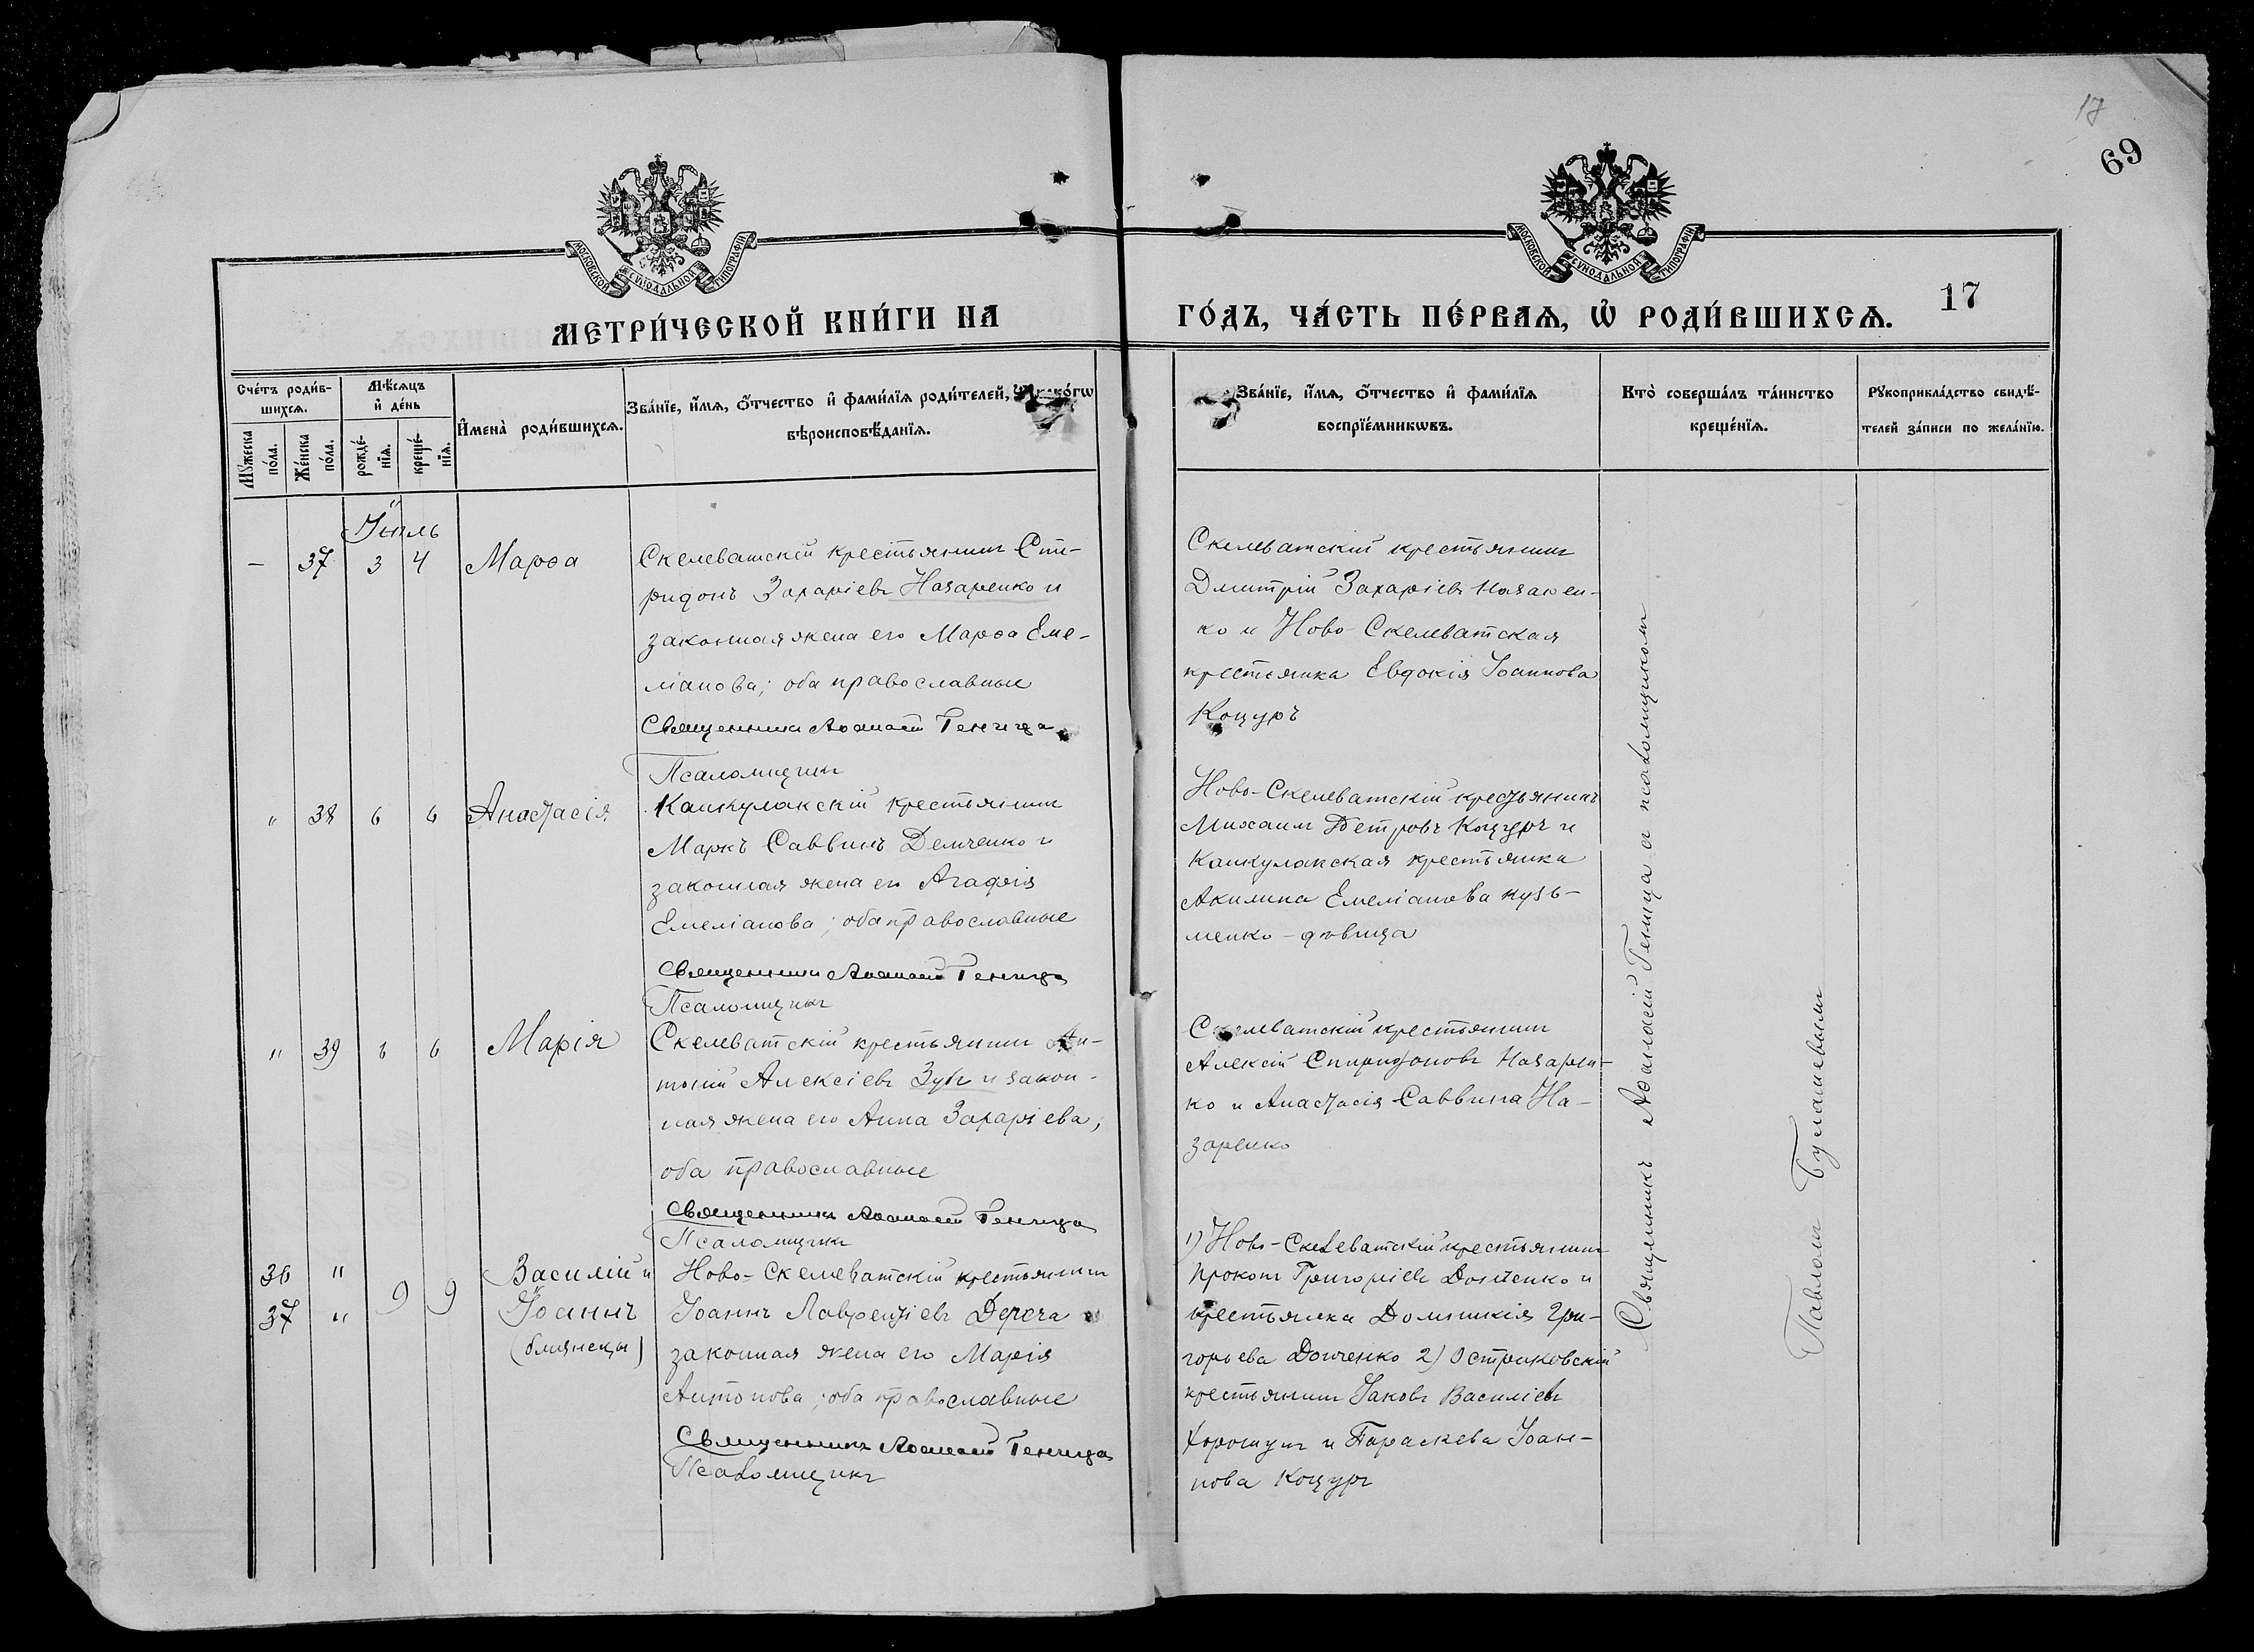 17
69
МОСКОВСКОЙ СѴНОДАЛЬНОЙ ТИПОГРАФІИ
МОСКОВСКОЙ СѴНОДАЛЬНОЙ ТИПОГРАФІИ
МЕТРИ́ЧЕСКОЙ КНИ́ГИ НА
ГО́ДЪ, ЧА́СТЬ ПЕ́РВАѦ, Ѡ҆ РОДИ́ВШИХСѦ.
17
Сче́тъ роди́в-
шихсѧ.
Мꙋ́жеска
по́ла.
Же́нска
по́ла.
Мѣ́сѧцъ
и҆ де́нь
рожде́-
нїѧ.
креще́-
нїѧ.
И҆мена̀ роди́вшихсѧ.
Зва́нїе, и҆́мѧ, ѻ҆́тчество и҆ фами́лїѧ роди́телей,
вѣроисповѣ́данїѧ.
Зва́нїе, и҆́мѧ, ѻ҆́тчество и҆ фами́лїѧ
воспрїе́мникѡвъ.
Кто̀ соверша́лъ та́инство
креще́нїѧ.
Рꙋкоприкла́дство свидѣ́-
телей за́писи по жела́нїю.
Іюль
— 37 3 4 Марѳа
Скелеватскій крестьянинъ Спи-
ридонъ Захаріевъ Назаренко и
законная жена его Марѳа Еме-
ліанова; оба православные
Священникъ Аѳанасій Геница
Псаломщикъ
Скелеватскій крестьянинъ
Дмитрій Захаріевъ Назарен-
ко и Ново-Скелеватская
крестьянка Евдокія Іоаннова
Коцуръ
" 38 6 6 Анастасія
Канкулакскій крестьянинъ
Маркъ Саввинъ Демченко и
законная жена его Агафія
Емеліанова; оба православные
Священникъ Аѳанасій Геница
Псаломщикъ
Ново-Скелеватскій крестьянинъ
Михаилъ Петровъ Коцуръ и
Канкулакская крестьянка
Акилина Емеліанова Кузь-
менко - дѣвица
" 39 6 6 Марія
Скелеватскій крестьянинъ Ан-
тоній Алексіевъ Зубъ и закон-
ная жена его Анна Захаріева,
оба православные
Священникъ Аѳанасій Геница
Псаломщикъ
Скелеватскій крестьянинъ
Алексій Спиридоновъ Назарен-
ко и Анастасія Саввина На-
заренко
36 " Василій и
37 " 9 9 Іоаннъ
(близнецы)
Ново-Скелеватскій крестьянинъ
Іоаннъ Лаврентіевъ Дереча и
законная жена его Марія
Антонова; оба православные
Священникъ Аѳанасій Геница
Псаломщикъ
1) Ново-Скелеватскій крестьянинъ
Прокопъ Григоріевъ Донченко и
крестьянка Домникія Гри-
горьева Донченко 2) Остриковскій
крестьянинъ Іаковъ Василіевъ
Хорошунъ и Параскева Іоан-
нова Коцуръ
Священникъ Аѳанасій Геница а псаломщикомъ
Павломъ Булашевымъ